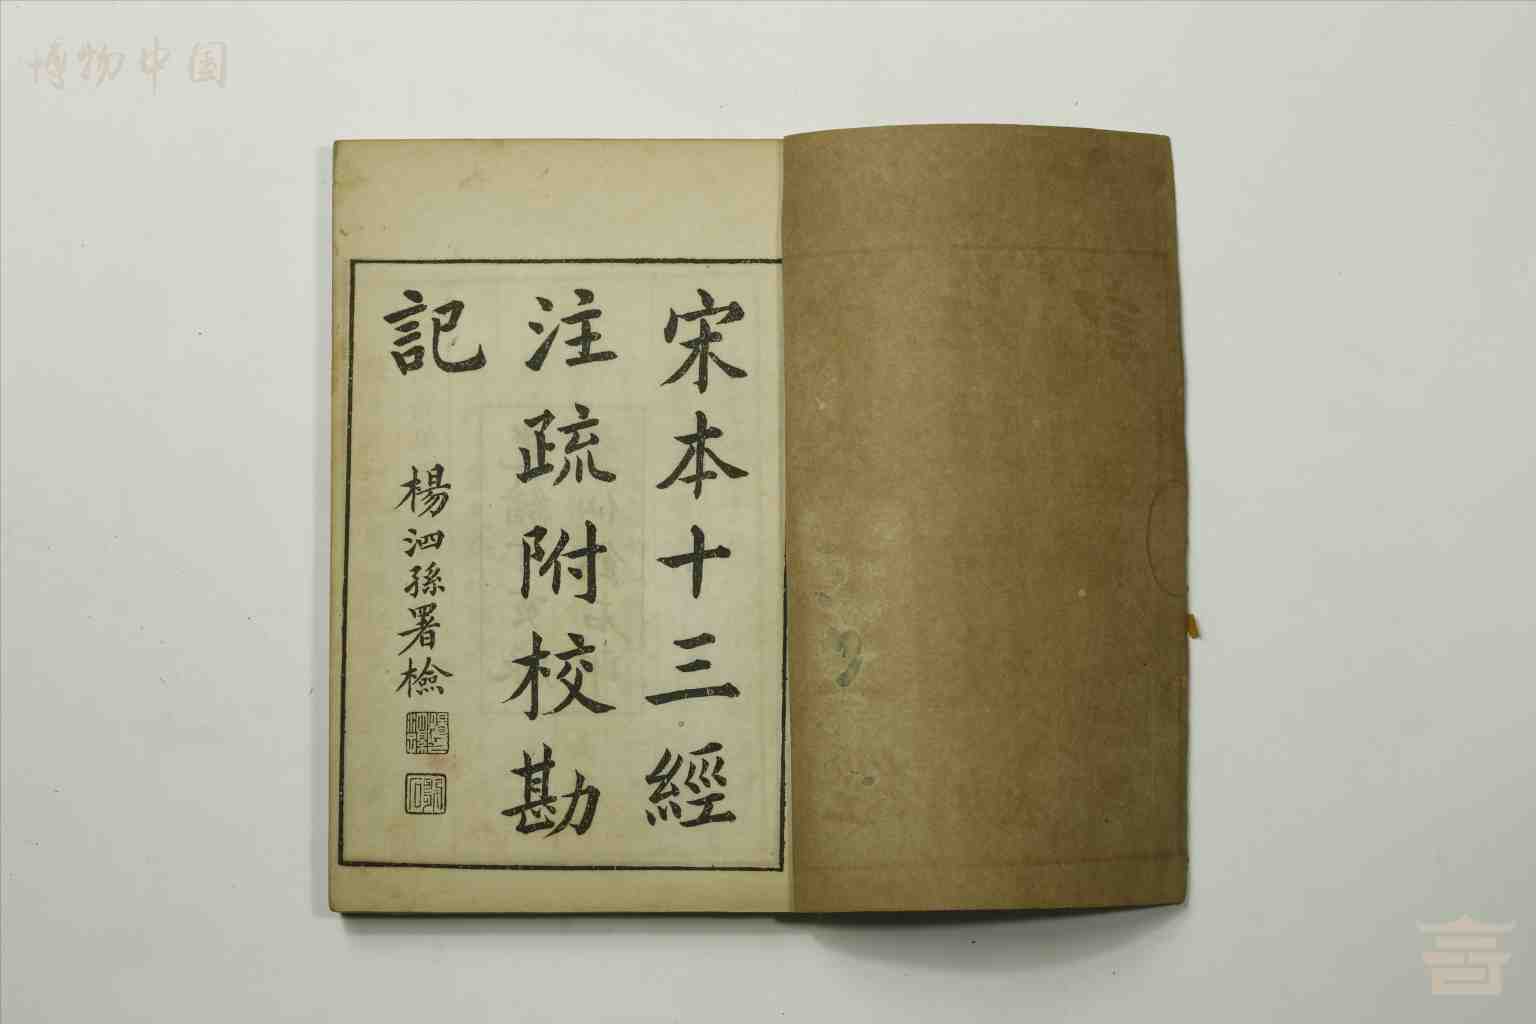 博物中国
宋本十三經
注疏附校勘
記
楊泗孫署檢